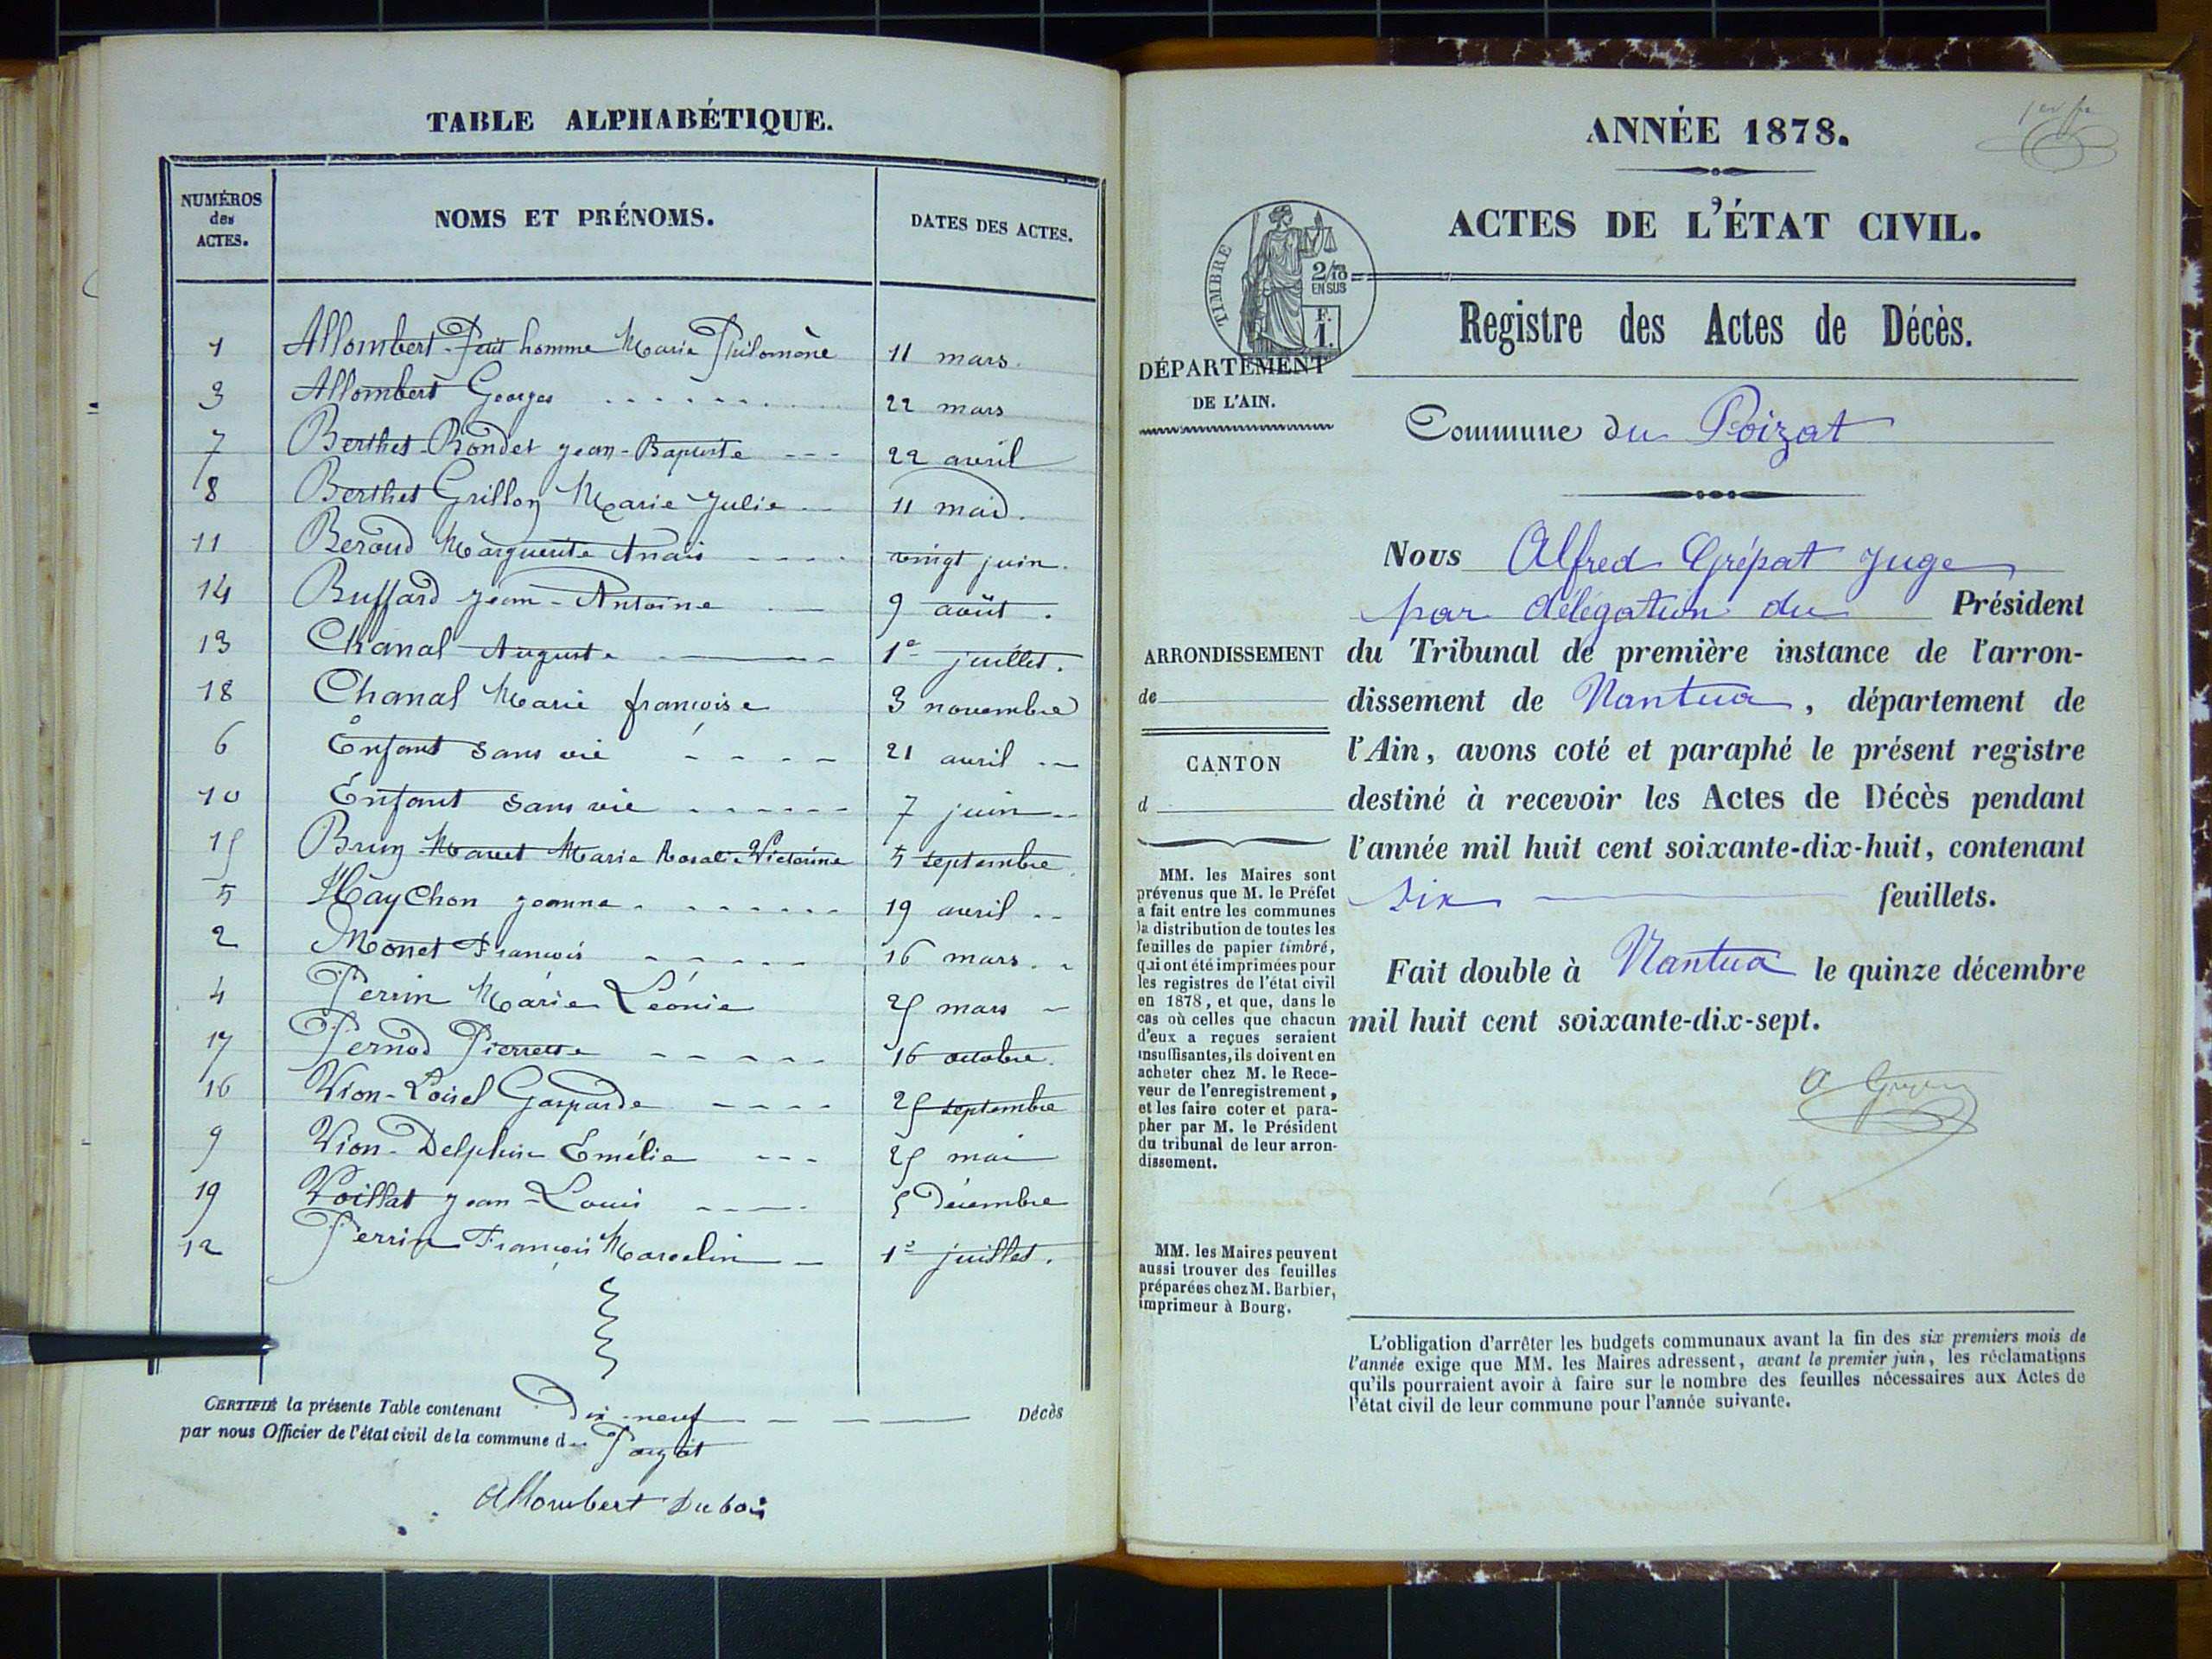 TABLE ALPHABÉTIQUE.
NUMÉROS des ACTES. NOMS ET PRÉNOMS. DATES DES ACTES.
1 Allombert-Petit homme Marie Philomène 11 mars.
3 Allombert Georges 22 mars
7 Berthet-Bondet jean-Baptiste --- 22 avril
8 Berthet Grillon Marie Julie -- 11 mai.
11 Beroud Marguerite Anaïs ---- vingt juin.
14 Buffard jean-Antoine 9 août.
13 Chanal Auguste 1er juillet.
18 Chanal Marie françoise 3 novembre
6 Enfant sans vie ---- 21 avril --
10 Enfant sans vie ------ 7 juin --
15 Brun Marie Rosalie Victorine 5 septembre.
5 Maychon jeanne 19 avril --
2 Monet François ----- 16 mars --
4 Perrin Marie Léonie 25 mars -
17 Pernod Pierrette ----- 16 octobre.
16 Vion-Loisel Gasparde ---- 25 septembre
9 Vion-Delphin Emélie --- 25 mai
19 Voillat jean-Louis ---- 5 Décembre
12 Perrin François Marcelin - 1er juillet.
CERTIFIÉ la présente Table contenant Dix-neuf Décès
par nous Officier de l'état civil de la commune du Poizat
Allombert Dubois
ANNÉE 1878.
ACTES DE L'ÉTAT CIVIL.
TIMBRE
2/10
EN SUS
F.
1.
Registre des Actes de Décès.
DÉPARTEMENT
DE L'AIN.
Commune du Poizat
Nous Alfred Grépat Juge
par délégation du Président
du Tribunal de première instance de l'arron-
dissement de Nantua, département de
l'Ain, avons coté et paraphé le présent registre
destiné à recevoir les Actes de Décès pendant
l'année mil huit cent soixante-dix-huit, contenant
six feuillets.
Fait double à Nantua le quinze décembre
mil huit cent soixante-dix-sept.
ARRONDISSEMENT
de
CANTON
d
MM. les Maires sont
prévenus que M. le Préfet
a fait entre les communes
la distribution de toutes les
feuilles de papier timbré,
qui ont été imprimées pour
les registres de l'état civil
en 1878, et que, dans le
cas où celles que chacun
d'eux a reçues seraient
insuffisantes, ils doivent en
acheter chez M. le Rece-
veur de l'enregistrement,
et les faire coter et para-
pher par M. le Président
du tribunal de leur arron-
dissement.
MM. les Maires peuvent
aussi trouver des feuilles
préparées chez M. Barbier,
imprimeur à Bourg.
L'obligation d'arrêter les budgets communaux avant la fin des six premiers mois de
l'année exige que MM. les Maires adressent, avant le premier juin, les réclamations
qu'ils pourraient avoir à faire sur le nombre des feuilles nécessaires aux Actes de
l'état civil de leur commune pour l'année suivante.